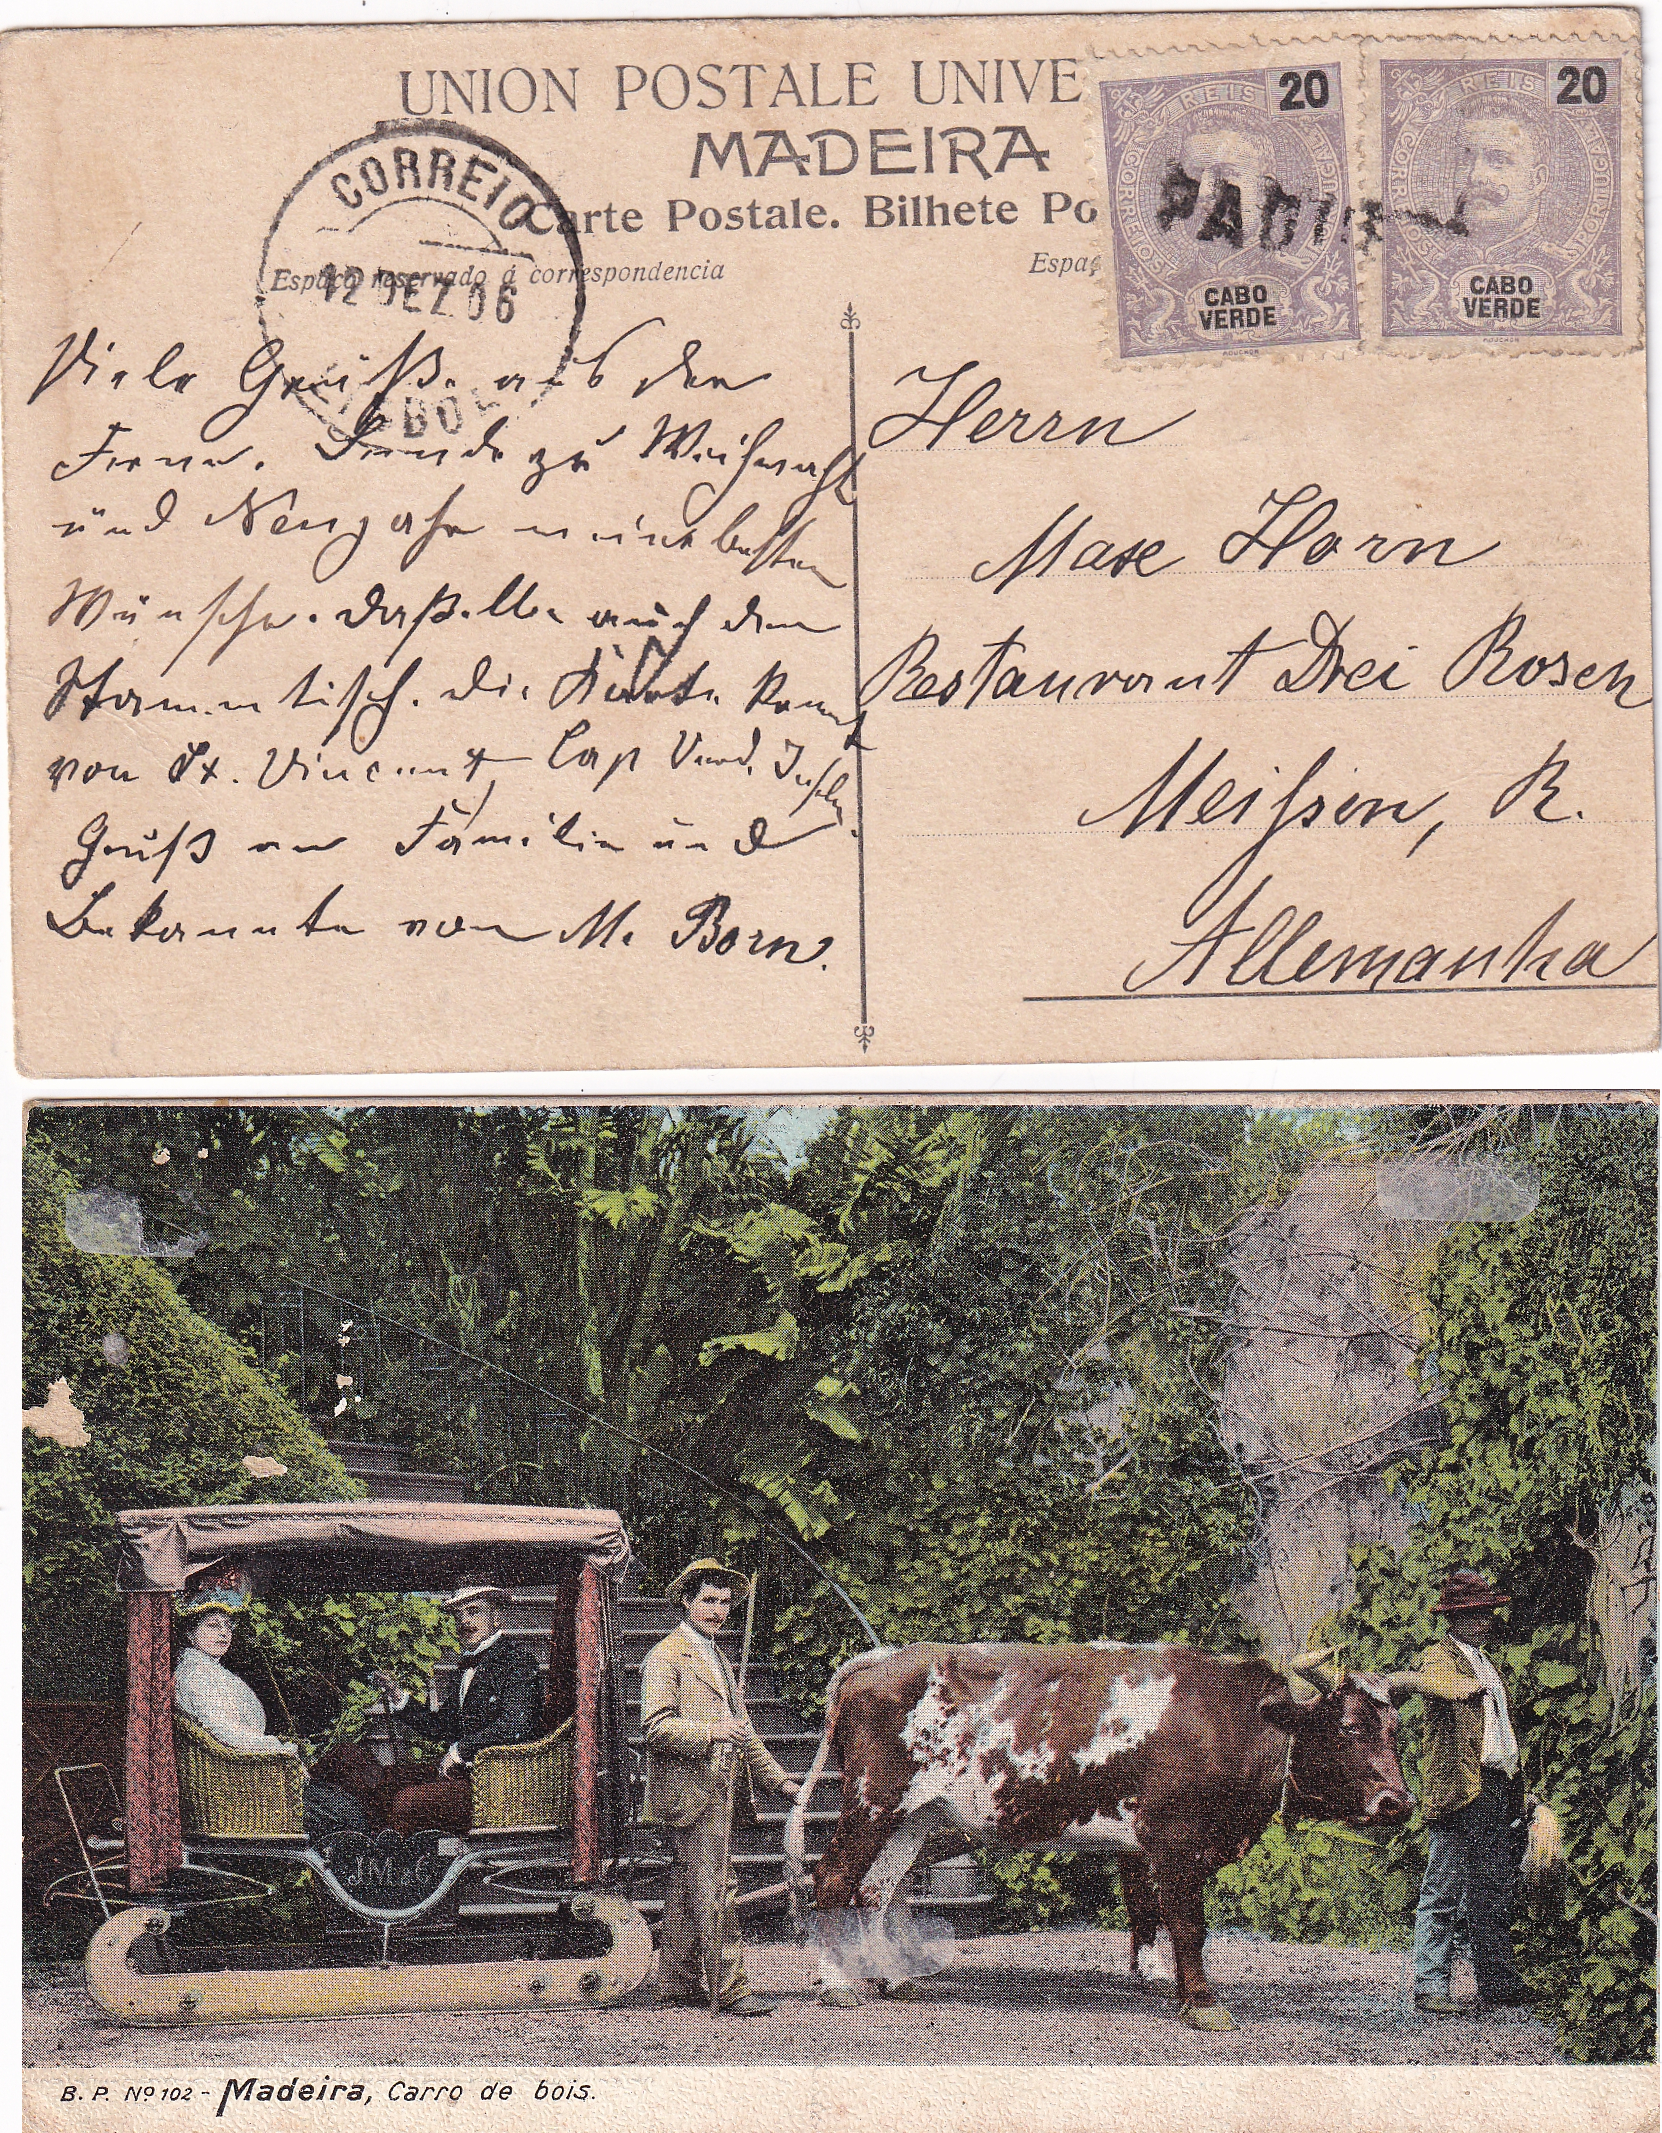 UNION POSTALE UNIVE
MADEIRA
Carte Postale. Bilhete Po
Espaço reservado á correspondencia
Espaç
CORREIO
12 DEZ 06
REIS 20
CORREIOS PORTUGAL
CABO
VERDE
MOUCHON
REIS 20
CORREIOS PORTUGAL
CABO
VERDE
MOUCHON
Viele Grüße aus der
Ferne. Sende zu Weihnacht
und Neujahr meine besten
Wünsche. daßelbe auch dem
Stammtisch. die Karte kommt
von St. Vincent, Cap Verd. Inseln.
Gruß an Familie und
Bekannte von M. Born.
Herrn
Max Horn
Restaurant Drei Rosen
Meißen, R.
Allemanha
J.M & C
B. P. Nº 102 - Madeira, Carro de bois.